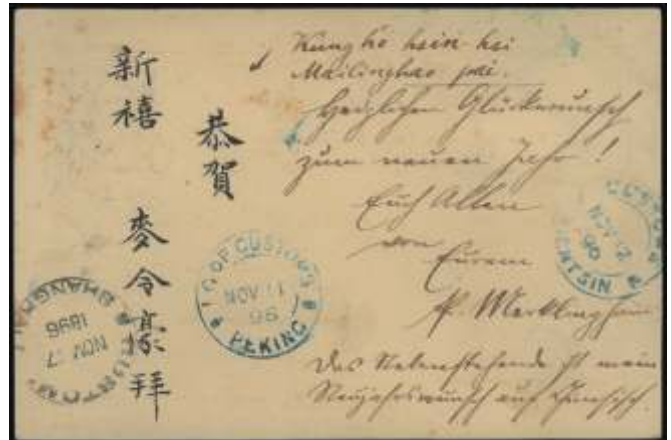 恭賀
新禧 麥令豪拜
Kung ho hsin-hsi
Mailinghao pai.
Herzlichen Glückwunsch
zum neuen Jahr!
Euch Allen
von
Eurem
P. Merklinghaus
Das Nebenstehende ist mein
Neujahrswunsch auf Chinesisch.
I.G. OF CUSTOMS
NOV 11
96
PEKING
CUSTOMS
NOV 12
96
TIENTSIN
CUSTOMS
NOV 17
1896
SHANGHAI